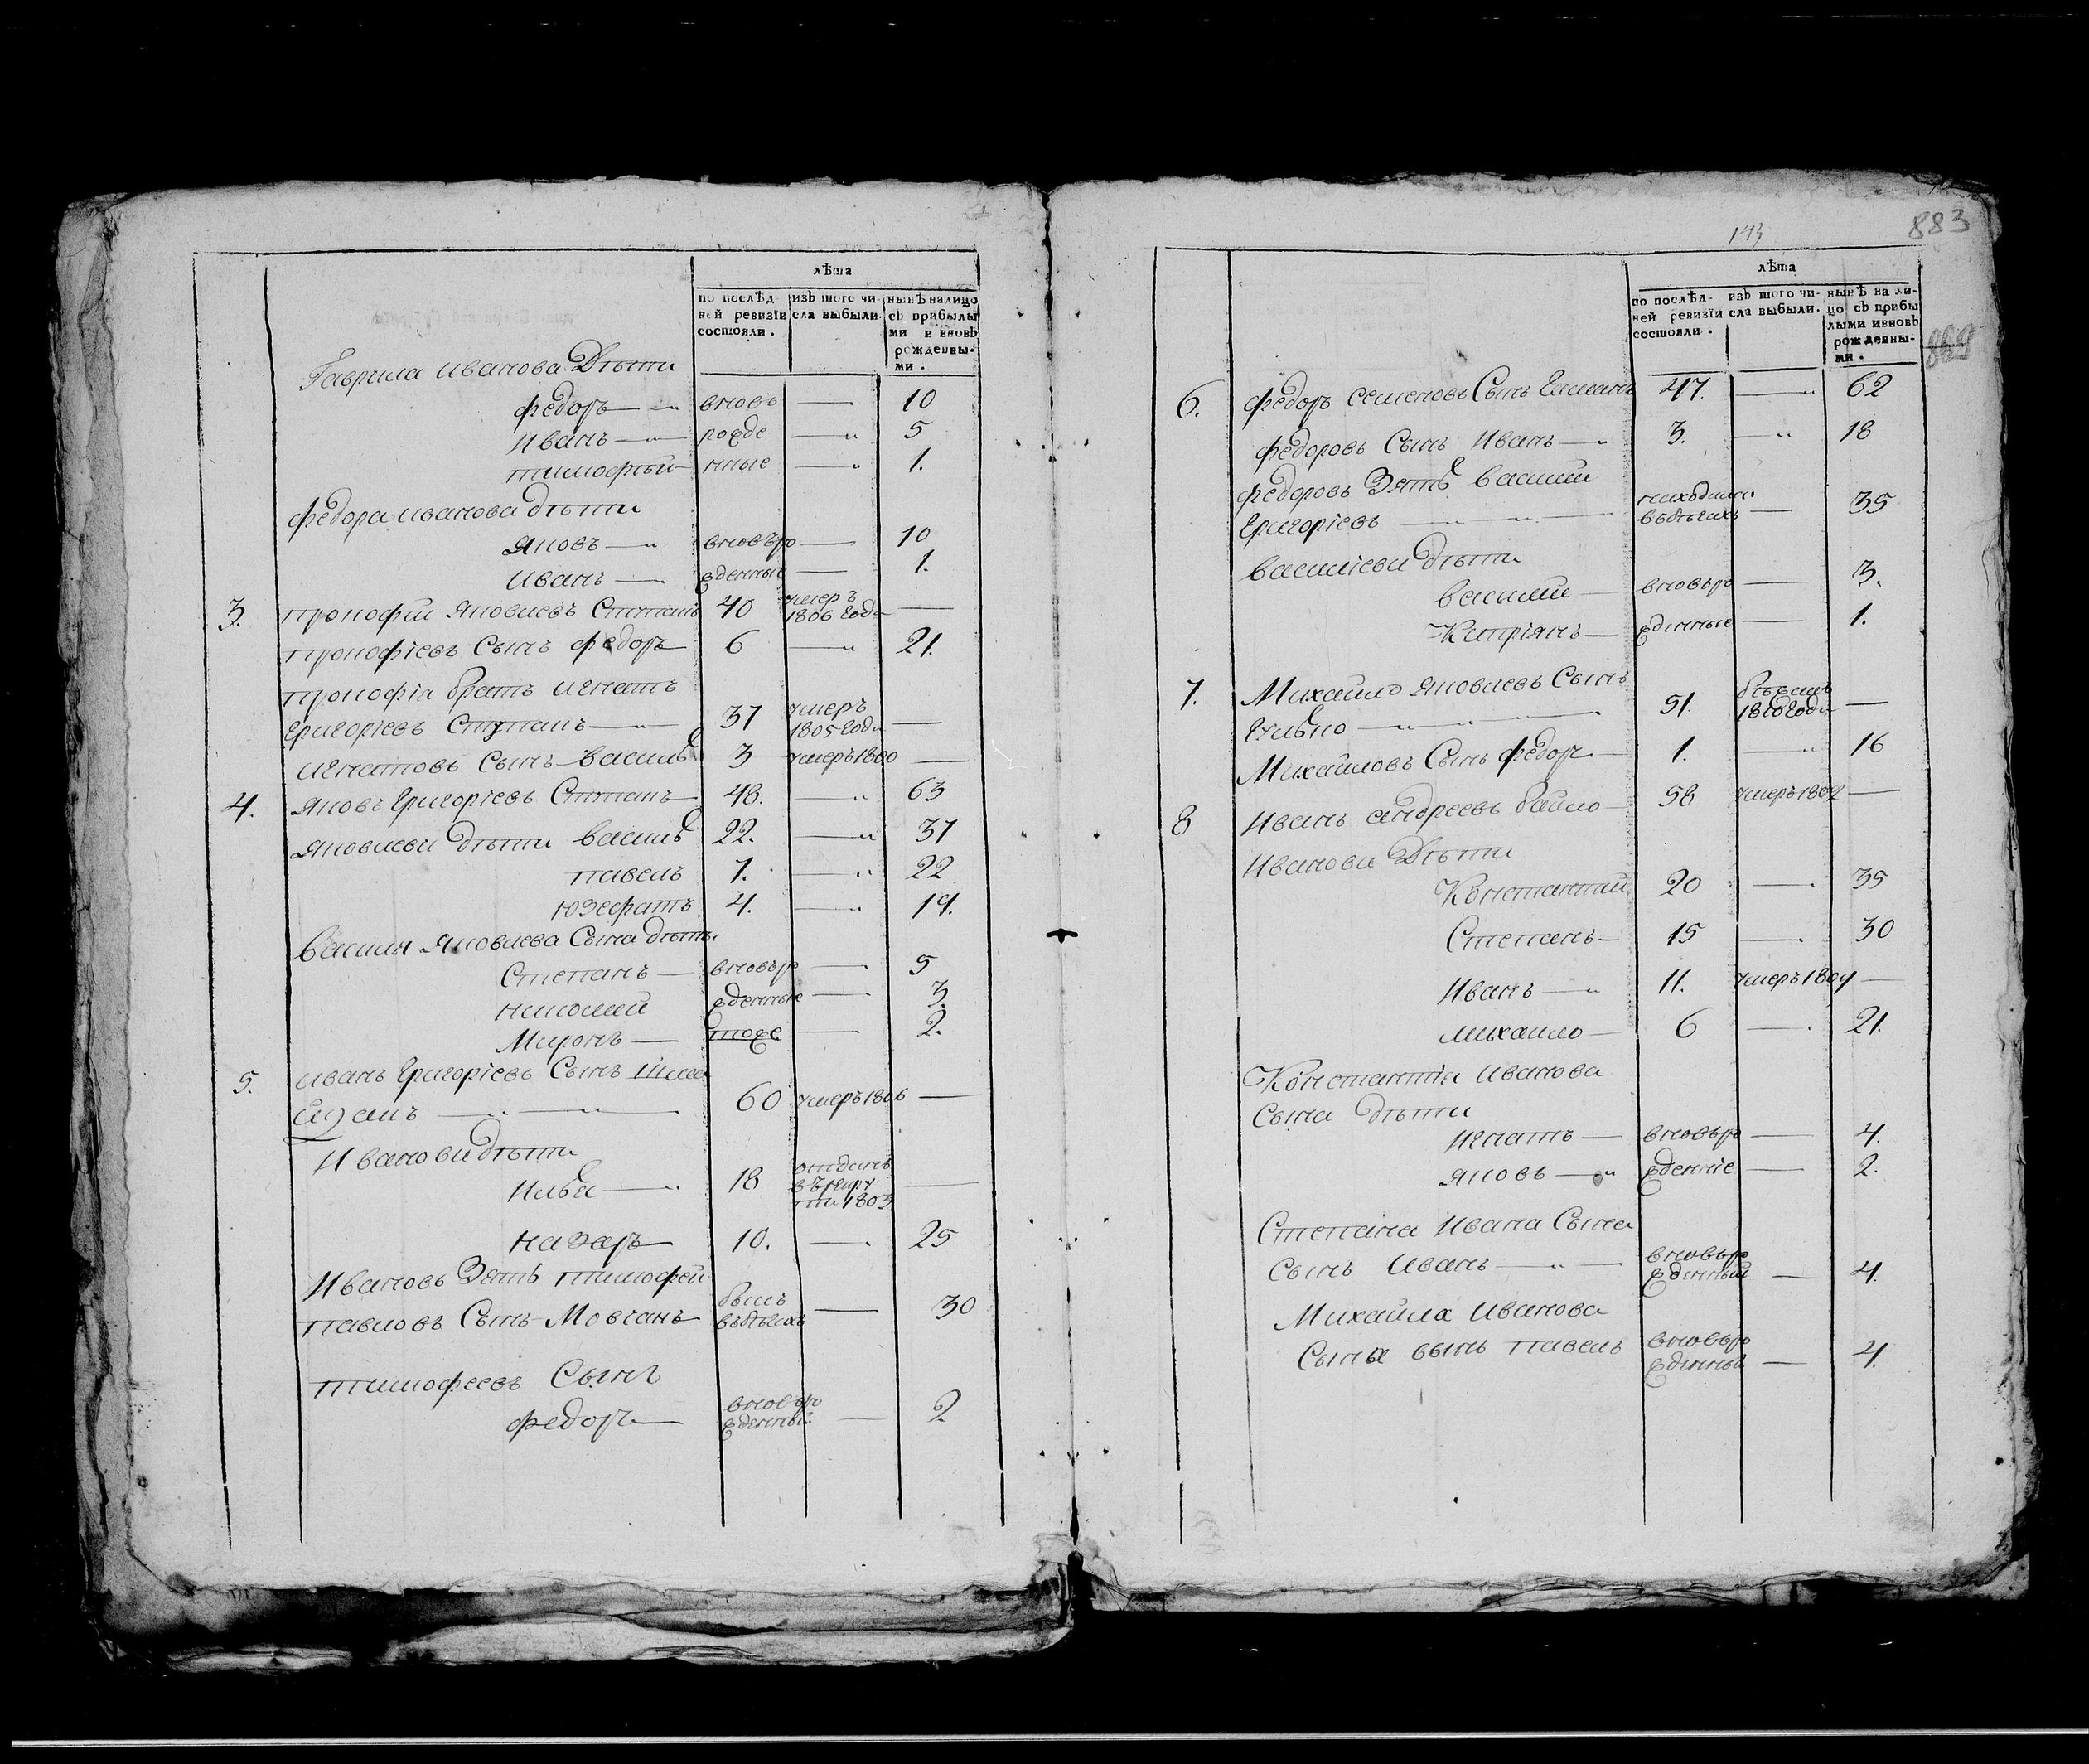 лѣта
по послѣд- изъ того чи- нынѣ налицо
ней ревизіи сла выбыли. съ прибылы
состояли. ми и вновь
рожденны-
ми.
Гаврила иванова Дѣти
федоръ вновъ — 10
Иванъ рожде — 5
тимофѣй нные — 1.
федора иванова дѣти
яковъ вновъро — 10
иванъ жденные — 1.
3. прокофій яковлевъ 40 умеръ 1806 года —
прокофіевъ сынъ федоръ 6 — 21.
прокофія братъ игнатъ
григоріевъ 37 умеръ 1805 года —
игнатовъ сынъ василь 3 умеръ 1800 —
4. яковъ григоріевъ 48. — 63
яковлеви дѣти василь 22. — 37
павелъ 7. — 22
юзефатъ 4. — 19.
василя яковлева сына дѣти
степанъ вновъро — 5
николай жденные — 3.
миронъ тоже — 2.
5. иванъ григоріевъ сынъ
60 умеръ 1806 —
Иванови дѣти
Илья 18 отданъ
въ рекру
ти 1803 —
назаръ 10. — 25
Ивановъ Зять тимофей
павловъ Сынъ Мовчанъ былъ въбѣгахъ — 30
тимофеевъ Сынъ
федоръ вновъро жденный — 2
143
883
лѣта
по послѣд- изъ того чи- нынѣ на ли-
ней ревизіи сла выбыли. цо съ прибы
состояли. лыми ивновь
рожденны-
ми.
869
6. федоръ семеновъ Сынъ 47. — 62
федоровъ Сынъ Иванъ 3. — 18
федоровъ Зять василій
григоріевъ находился въбѣгахъ — 35
василіеви дѣти
василій вновъро — 3.
Кепріянъ жденные — 1.
7. Михайло яковлевъ Сынъ
51. 1810 года —
Михайловъ Сынъ федоръ 1. — 16
8 Иванъ андреевъ байло 58 умеръ 1802 —
Иванови Дѣти
Константій 20 — 35
Степанъ 15 — 30
Иванъ 11. умеръ 1809 —
михайло 6 — 21.
Константія иванова
сына дѣти
игнатъ вновъро — 4.
яковъ жденніе — 2.
Степана ивана Сына
сынъ иванъ вновъро жденный — 4.
Михайла иванова
Сына сынъ павелъ вновъро жденный — 4.